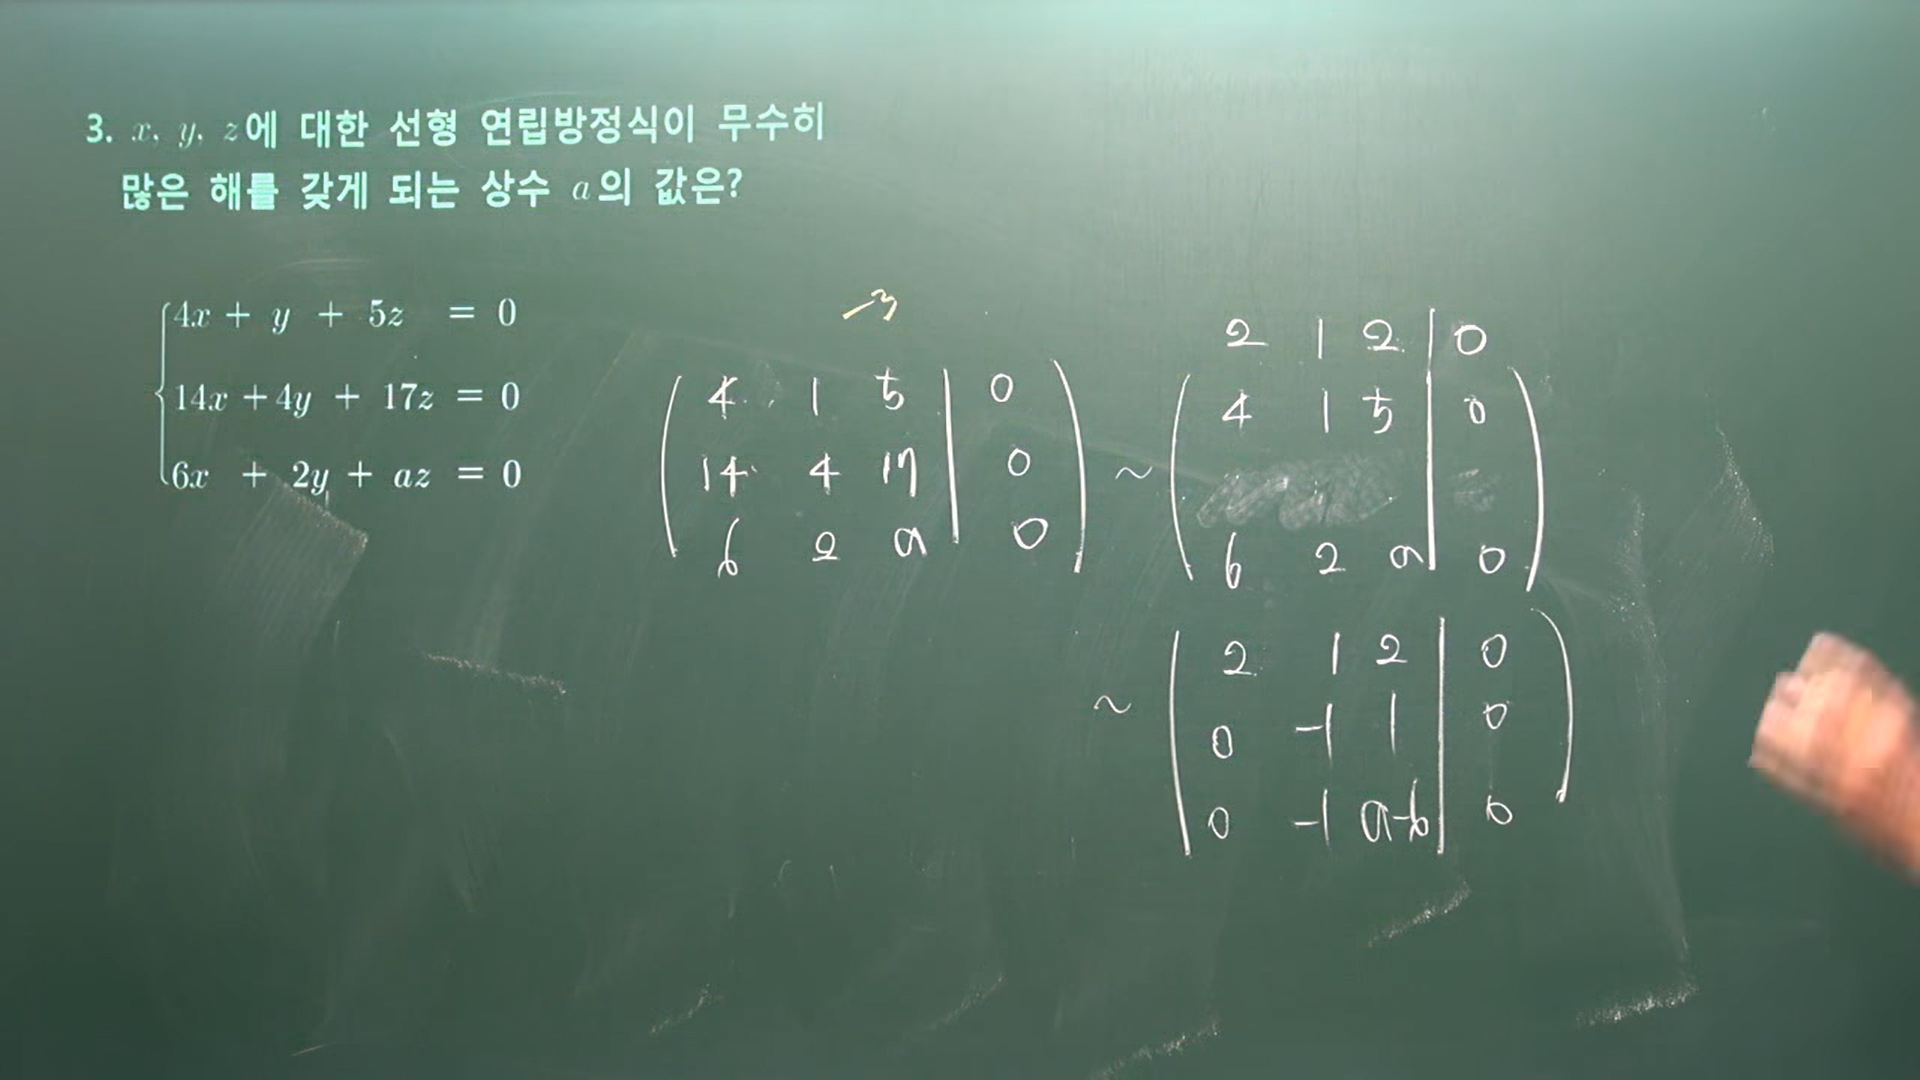 3. x, y, z에 대한 선형 연립방정식이 무수히
많은 해를 갖게 되는 상수 a의 값은?
4x + y + 5z = 0
14x + 4y + 17z = 0
6x + 2y + az = 0
-3
4 1 5 | 0
14 4 17 | 0
6 2 a | 0
~
2 1 2 | 0
4 1 5 | 0
6 2 a | 0
~
2 1 2 | 0
0 -1 1 | 0
0 -1 a-6 | 0